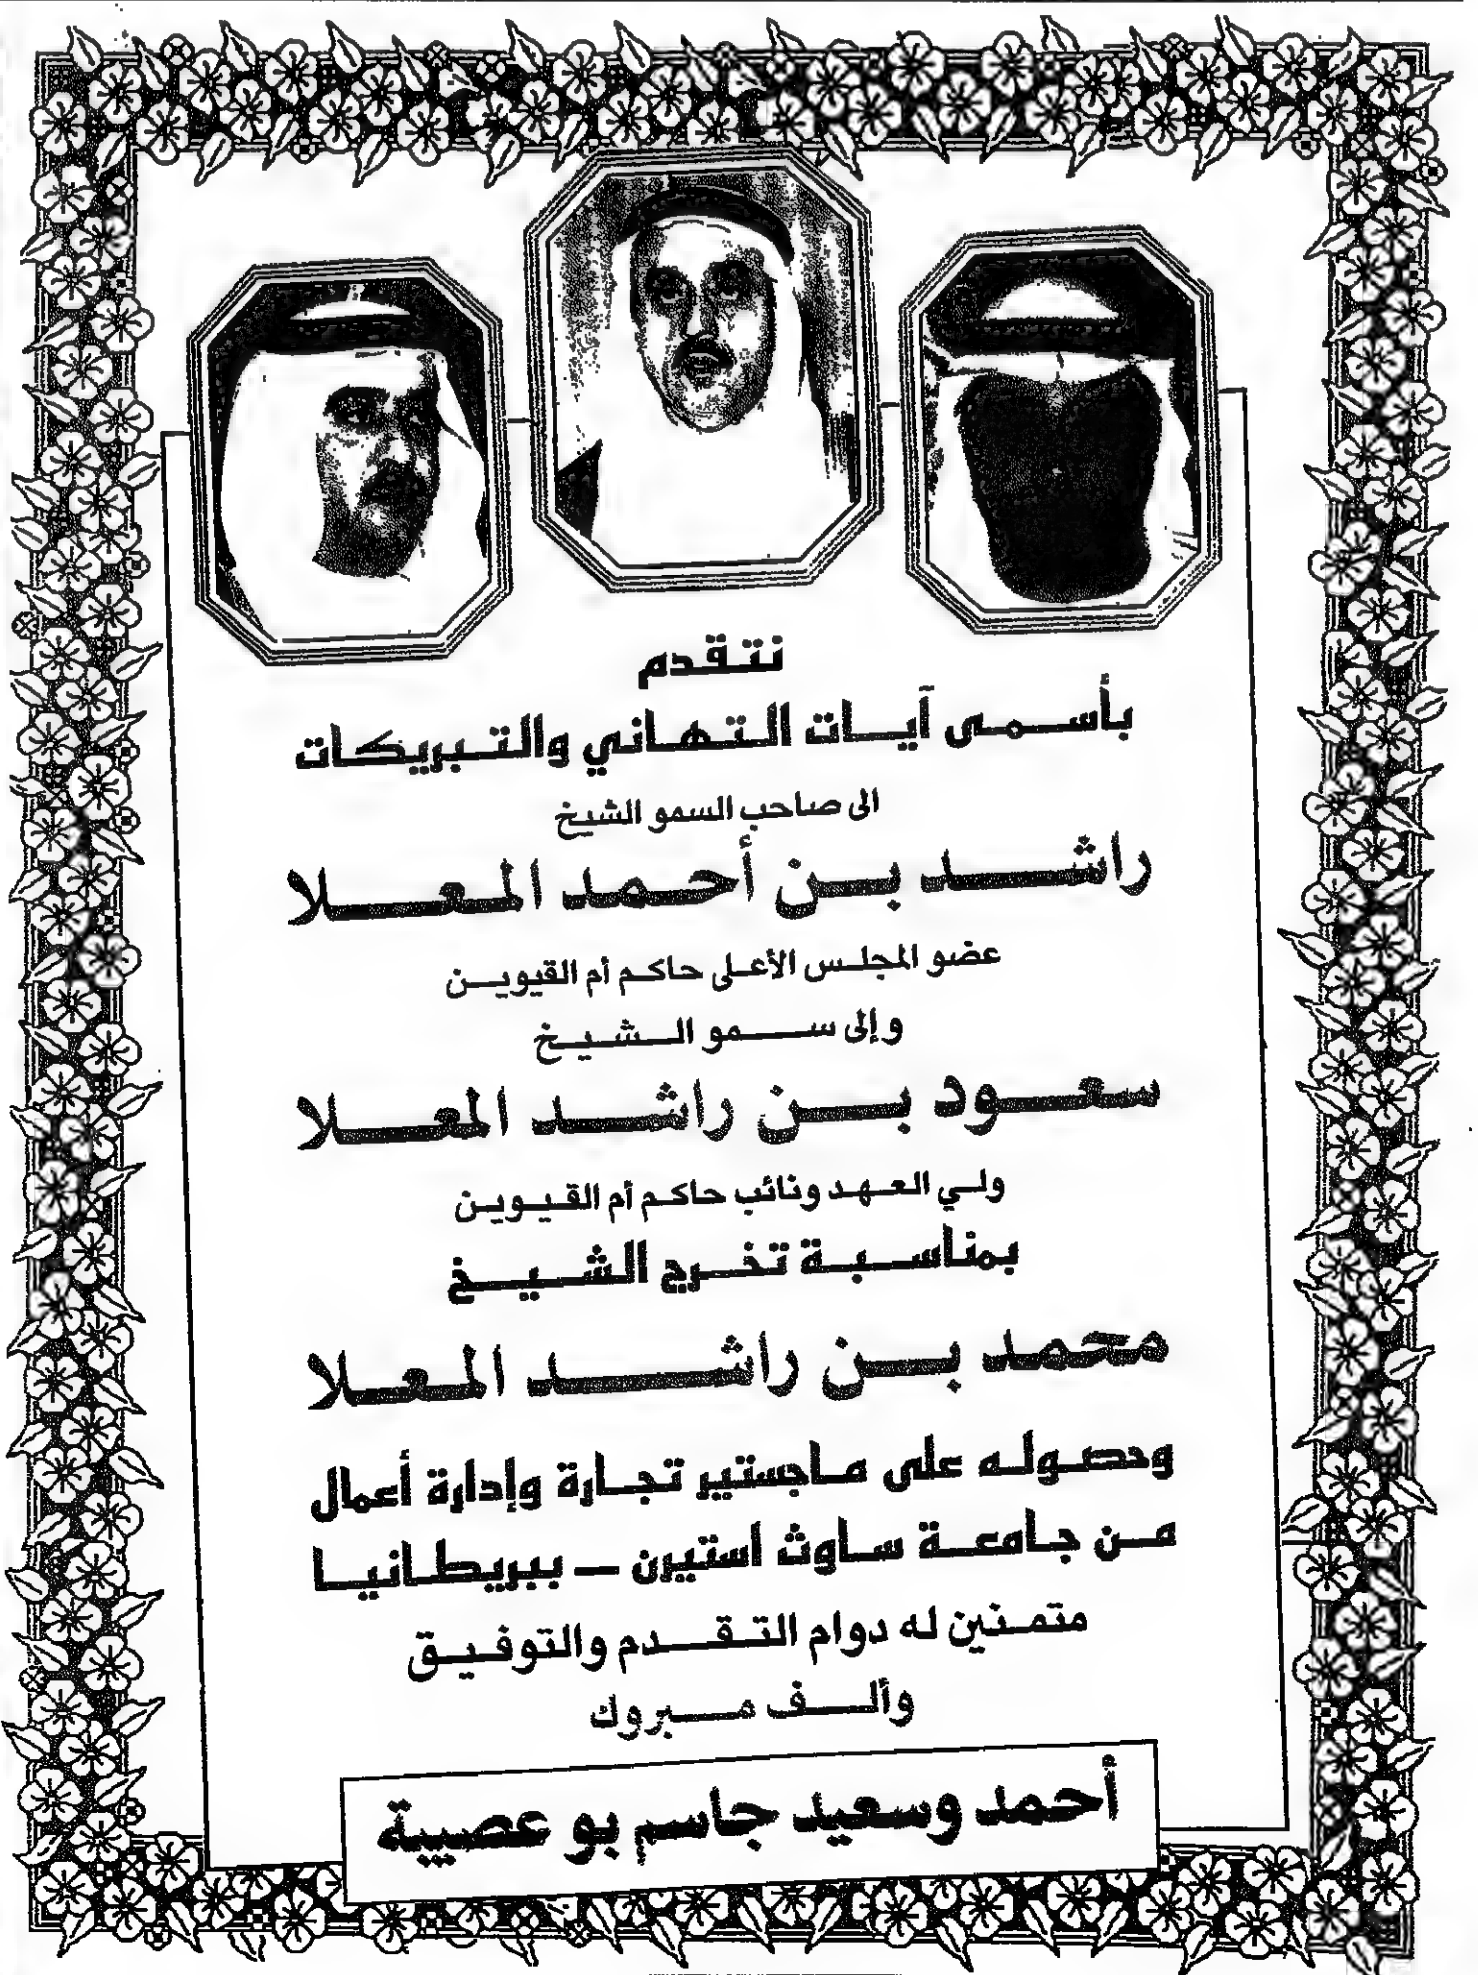 نتقدم
بأسمى آيات التهاني والتبريكات
الى صاحب السمو الشيخ
راشد بن أحمد المعلا
عضو المجلس الأعلى حاكم أم القيوين
وإلى سمو الشيخ
سعود بن راشد المعلا
ولي العهد ونائب حاكم أم القيوين
بمناسبة تخرج الشيخ
محمد بن راشد المعلا
وحصوله على ماجستير تجارة وإدارة أعمال
من جامعة ساوث استيرن - ببريطانيا
متمنين له دوام التقدم والتوفيق
وألف مبروك
أحمد وسعيد جاسم بو عصيبة